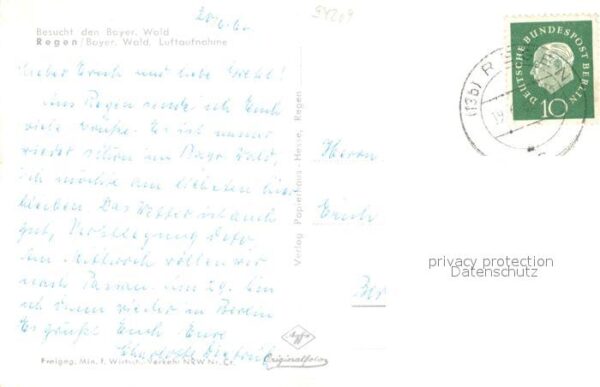 20.6.60
54209
Besucht den Bayer. Wald
Regen/Bayer. Wald, Luftaufnahme
Lieber Erich und liebe Gretel!
Aus Regen sende ich Euch
viele Grüße. Es ist immer
wieder schön im Bayr. Wald,
ich möchte am liebsten hier
bleiben. Das Wetter ist auch
gut, Verpflegung dito.
Am Mittwoch wollen wir
nach Passau. Am 29. bin
ich dann wieder in Berlin
Es grüßt Euch Eure
Charlotte
Freigeg. Min. f. Wirtsch. u. Verkehr NRW Nr.
Verlag Papierhaus-Hesse, Regen
Agfa
Originalfoto
Herrn
Erich
Ber
(13b) REGEN
DEUTSCHE BUNDESPOST BERLIN
10
privacy protection
Datenschutz